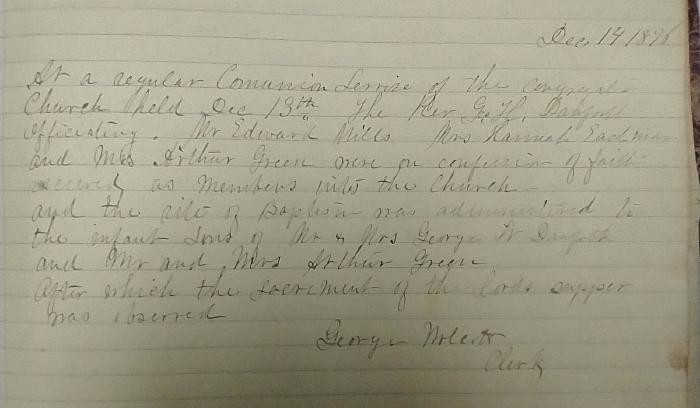 Dec 14 1896
At a regular Comunion Servise of the congregati
Church held Dec 13th The Rev Geo H. Danforth
Officiating. Mr Edward Mills Mrs Hannah Eadman
and Mrs Arthur Green were on confession of faith
received as members into the Church
and the rite of Baptism was administered to
the infant Sons of Mr & Mrs George W Danforth
and Mr and Mrs Arthur Green
After which the sacrement of the lords supper
was observed
George
Clerk